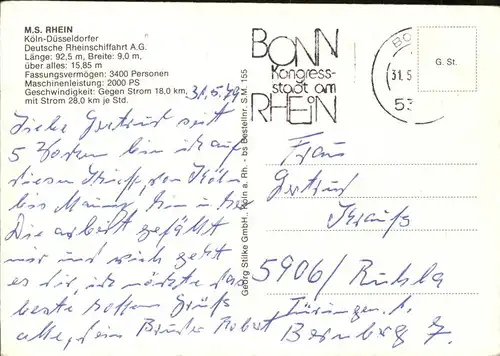 M.S. RHEIN
Köln-Düsseldorfer
Deutsche Rheinschiffahrt A.G.
Länge: 92,5 m, Breite: 9,0 m,
über alles: 15,85 m
Fassungsvermögen: 3400 Personen
Maschinenleistung: 2000 PS
Geschwindigkeit: Gegen Strom 18,0 km,
mit Strom 28,0 km je Std.
31.5.79
Liebe Gertrud seit
5 bin ich auf
diesen Schiff, von Köln
bis Mainz hin u her
Die arbeit gefällt
mir und wich geht
es dir, ich
beste hoffen Grüße
alle, dein Bruder Robert
Georg Stilke GmbH., Köln a. Rh. - bs Bestellnr. S.M. 155
BONN
Kongress-
stadt am
RHEIN
BO
31.5
53
G. St.
Frau
Gertrud
Krauß
5906/Ruhla
Thüringen.
Bernberg 7.